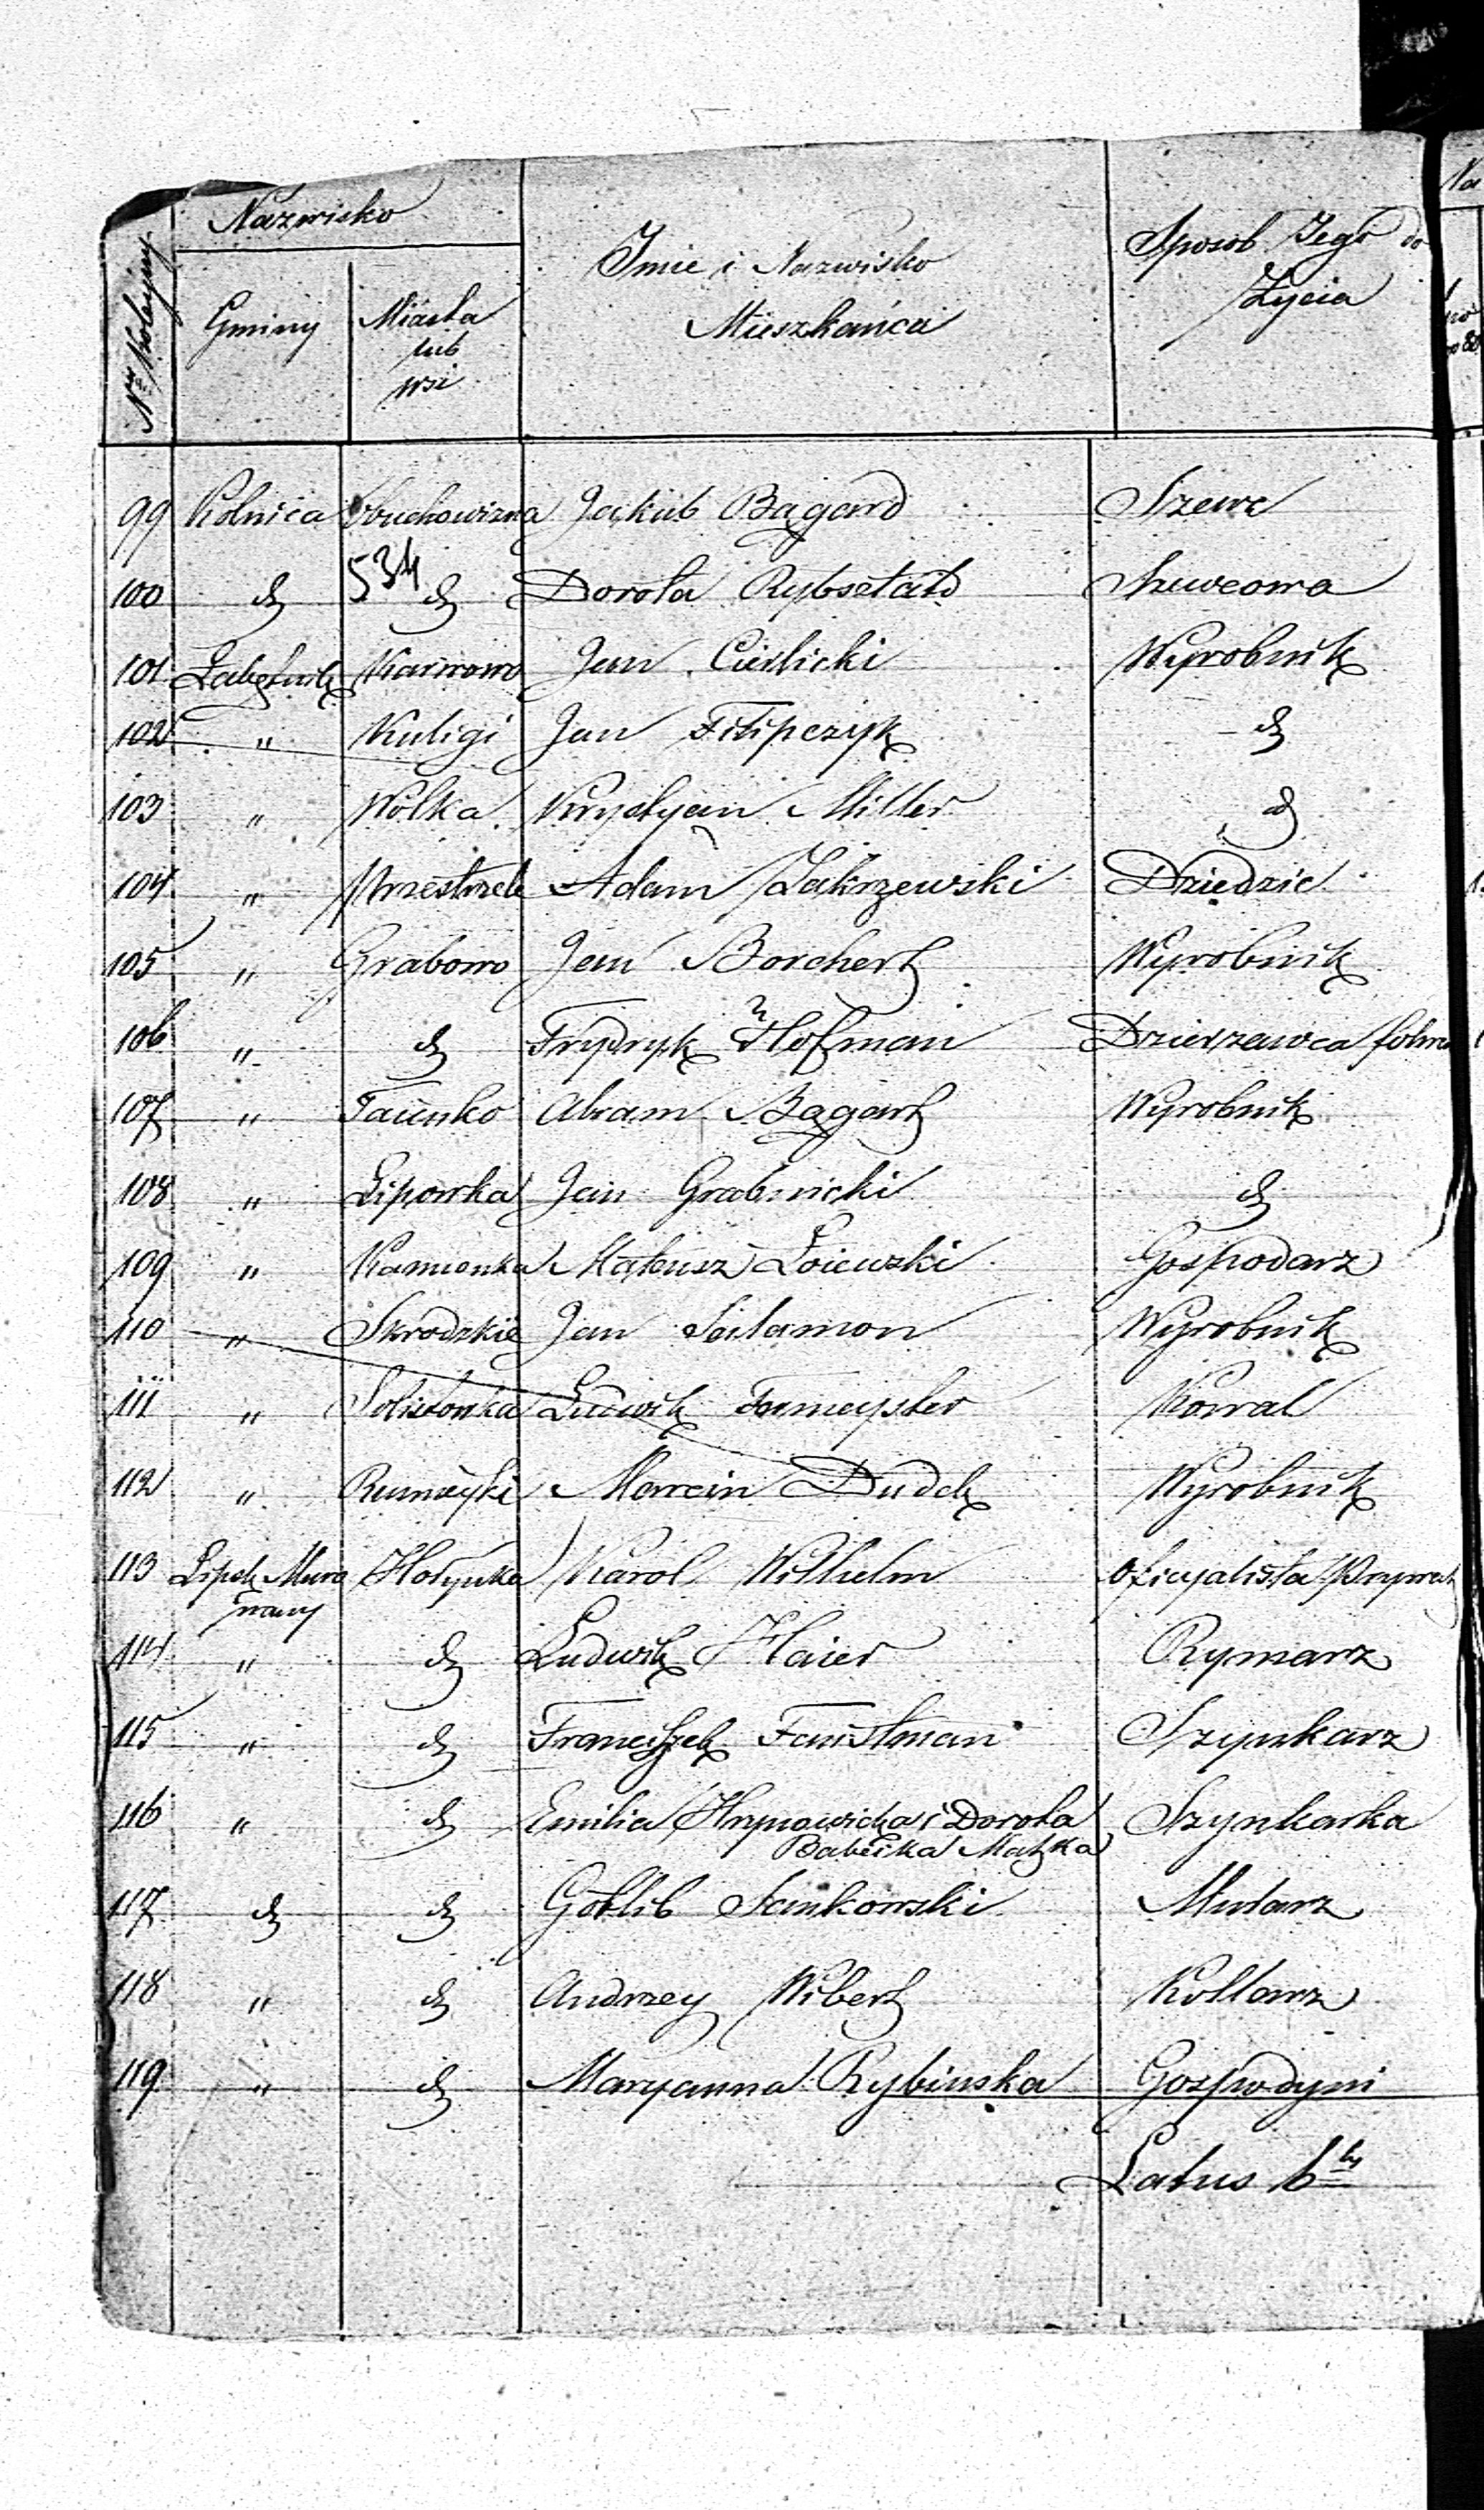 Nro Koleyny
Nazwisko
Gminy
Miasta
lub
wsi
Imie i Nazwisko
Mieszkańca
Sposob Jego do
Życia
99 Kolnica Obuchowizna Jakub Bagard Szewc
534
100 dº dº Dorota Rybsztatd Szewcowa
101 Łabętnik Karwowo Jan Cieslicki Wyrobnik
102 " Kuligi Jan Filipczyk dº
103 " Wolka Krystyan Miller dº
104 " Przestrzele Adam Zakrzewski Dziedzic
105 " Grabowo Jan Borchert Wyrobnik
106 " dº Frydryk Hofman Dzierzawca folw
107 " Taienko Abram Bagart Wyrobnik
108 " Lipowka Jan Grabnicki dº
109 " Kamionka Mateusz Łoiewski Gospodarz
110 " Skrodzkie Jan Salamon Wyrobnik
111 " Solistowka Ludwik Kowal
112 " Rumieyki Marcin Dudek Wyrobnik
113 Lipsk Muro Hołynka Karol Wilhelm Oficyalista Prywat
wany
114 " dº Ludwik Haier Rymarz
115 " dº Franciszek Faustman Szynkarz
116 " dº Emilia Hrynowicka i Dorota Szynkarka
Babicka Matka
117 dº dº Gotlib Jankowski Mularz
118 " dº Andrzey Wibert Kollarz
119 " dº Maryanna Rybinska Gospodyni
Latus 6ty